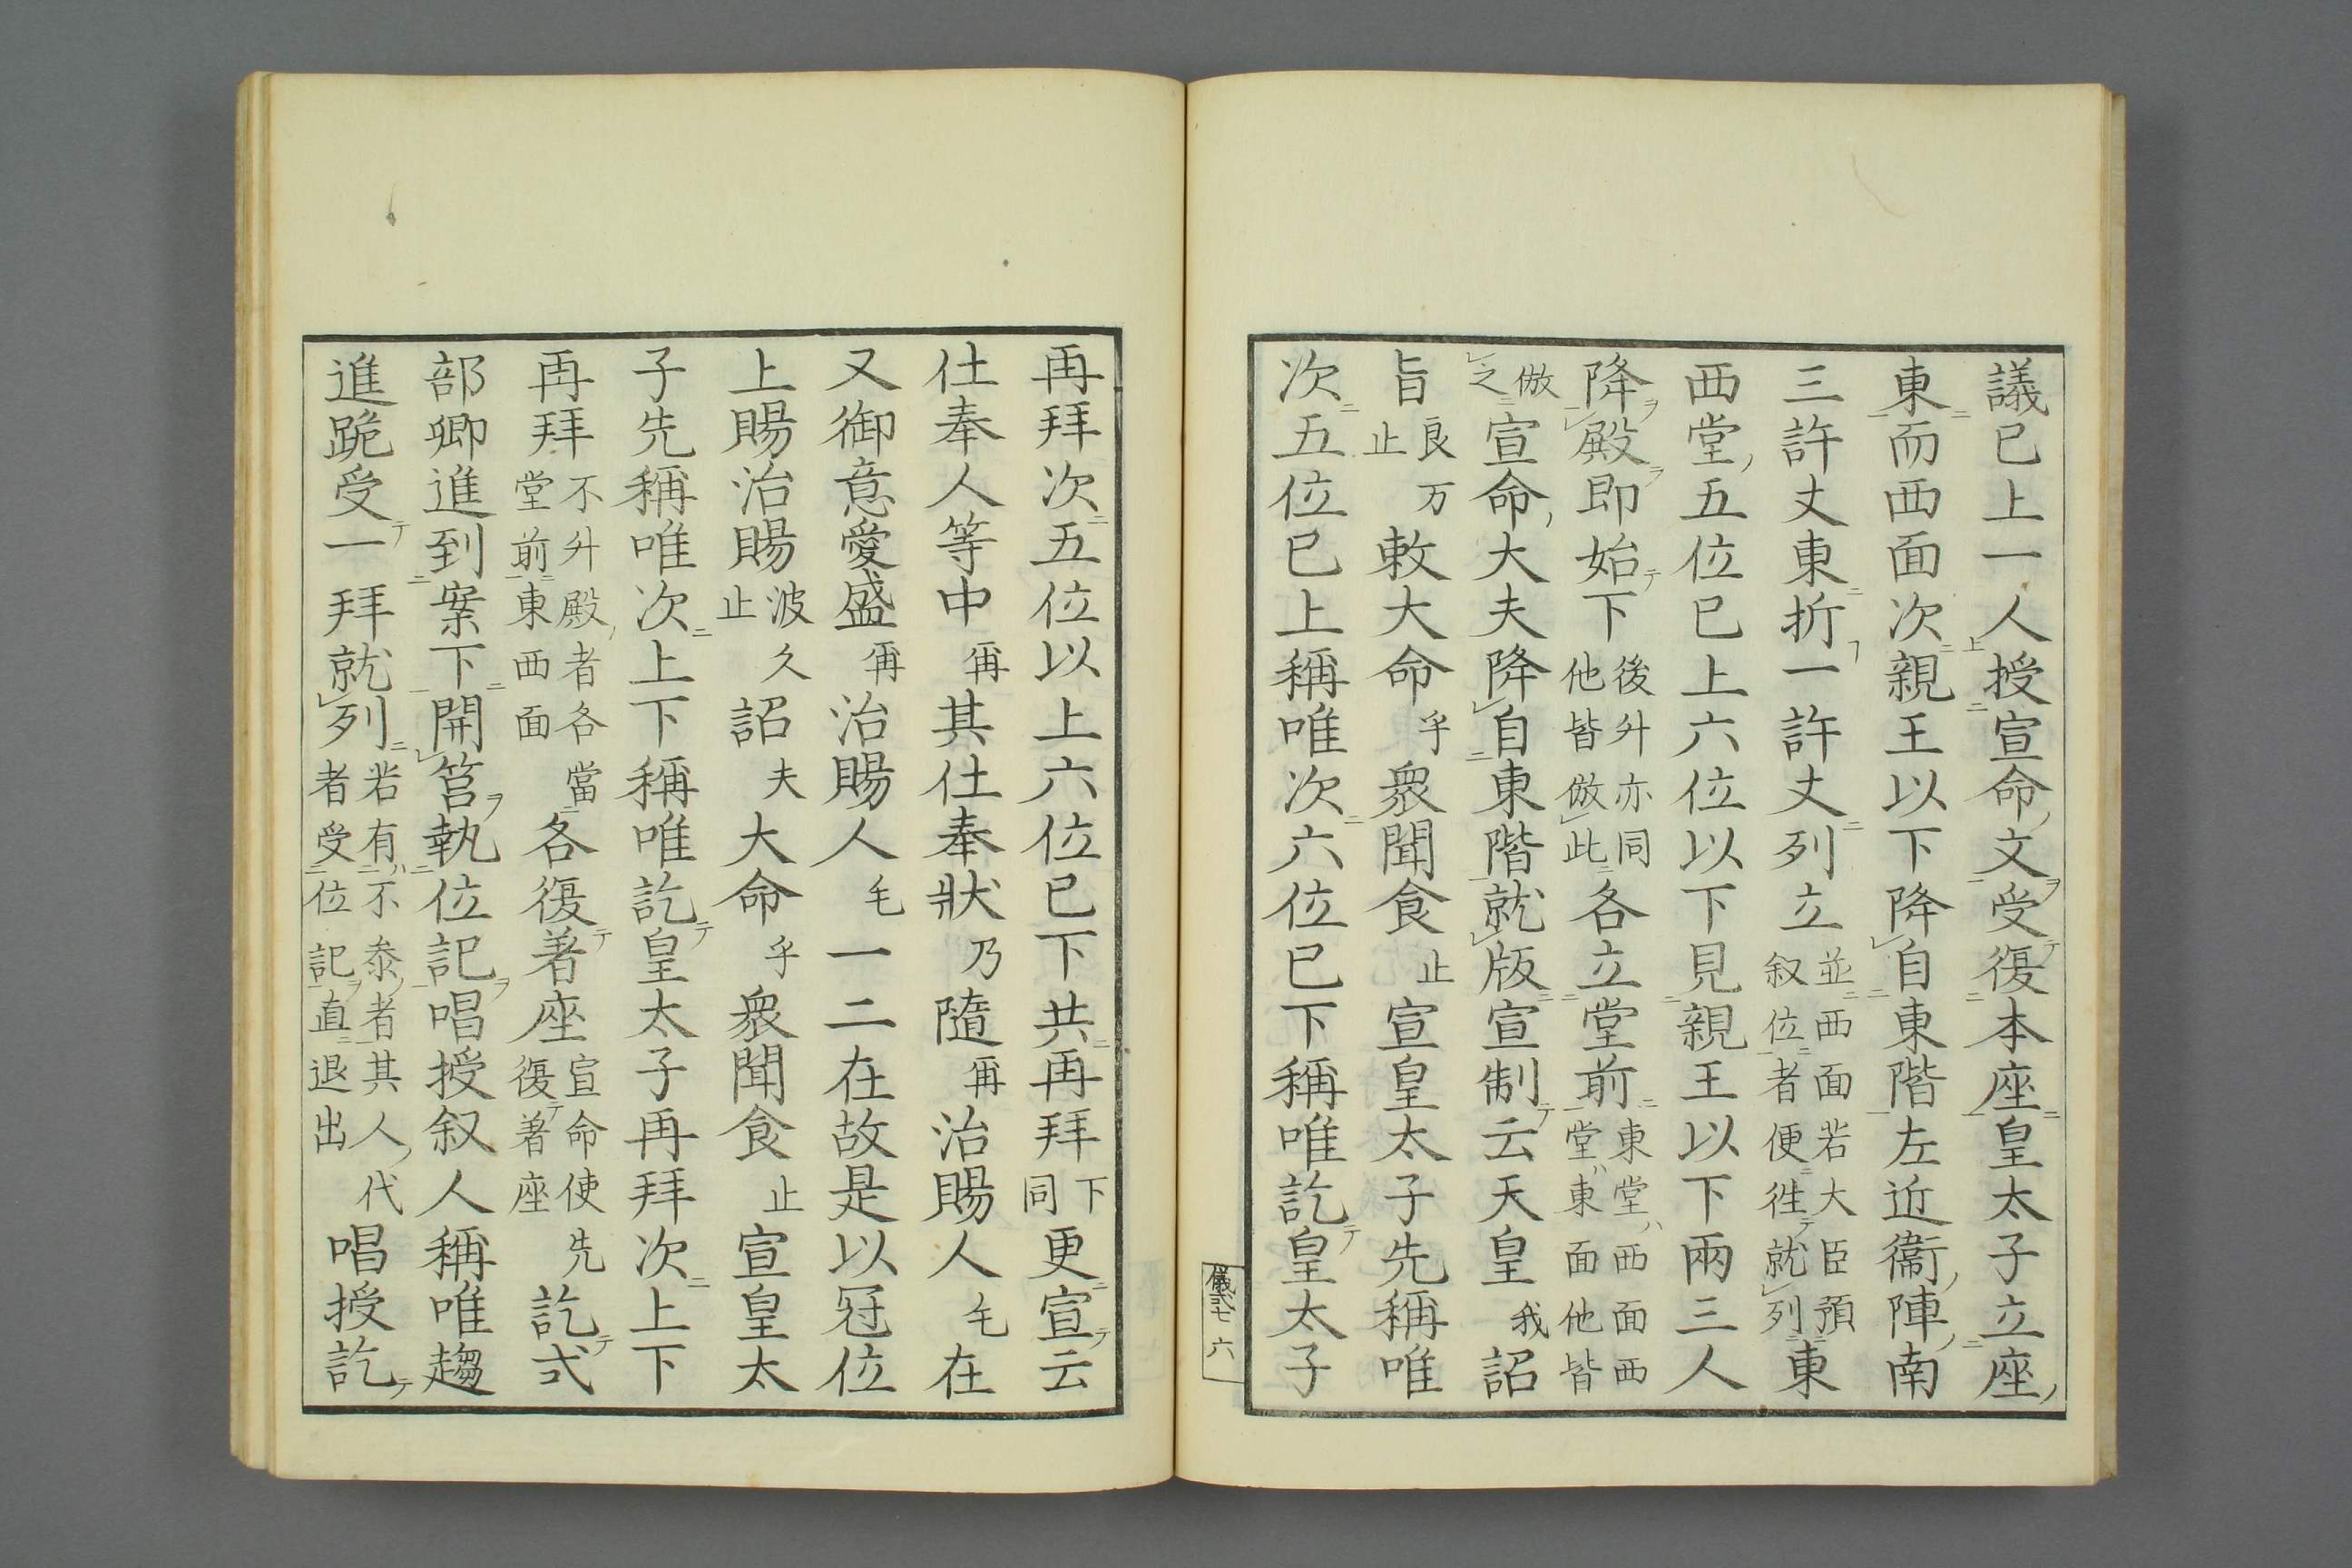 議已上一人授宣命文受復本座皇太子立座
東而西面次親王以下降自東階左近衞陣南
三許丈東折一許丈列立並西面若大臣預叙位者便徃就列東
西堂五位已上六位以下見親王以下兩三人
降殿即始下後升亦同他皆倣此各立堂前東堂西面西堂東面他皆
倣之宣命大夫降自東階就版宣制云天皇我詔
旨良万止敕大命乎衆聞食止宣皇太子先稱唯
次五位已上稱唯次六位已下稱唯訖皇太子
儀式七 六
再拜次五位以上六位已下共再拜下同更宣云
仕奉人等中爾其仕奉狀乃隨爾治賜人毛在
又御意愛盛爾治賜人毛一二在故是以冠位
上賜治賜波久止詔夫大命乎衆聞食止宣皇太
子先稱唯次上下稱唯訖皇太子再拜次上下
再拜不升殿者各當堂前東西面各復著座宣命使先復著座訖式
部卿進到案下開筥執位記唱授叙人稱唯趨
進跪受一拜就列若有不叅者其人代者受位記直退出唱授訖